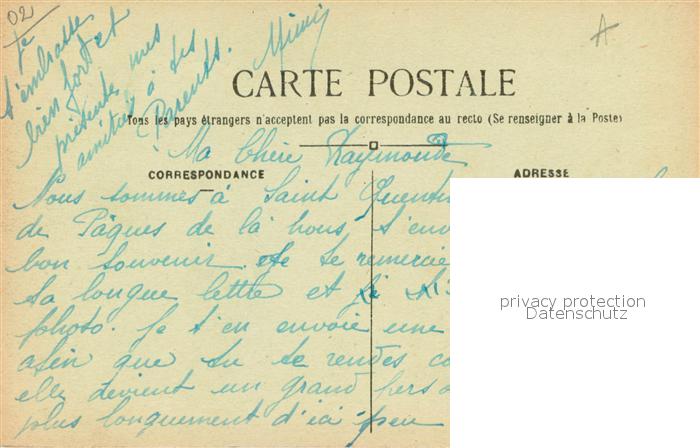 02
Je
t'embrasse
bien fort et
présente mes
amitiés à tes
Parents. Mimi
A
CARTE POSTALE
Tous les pays étrangers n'acceptent pas la correspondance au recto (Se renseigner à la Poste)
Ma Chère Raymonde
CORRESPONDANCE
ADRESSE
Nous sommes à Saint Quentin
de Pâques de là nous t'env
bon souvenir. Je te remercie
ta longue lettre et
photo. Je t'en envoie une
afin que tu te rendes co
elle devient un grand pers
plus longuement d'ici peu
privacy protection
Datenschutz